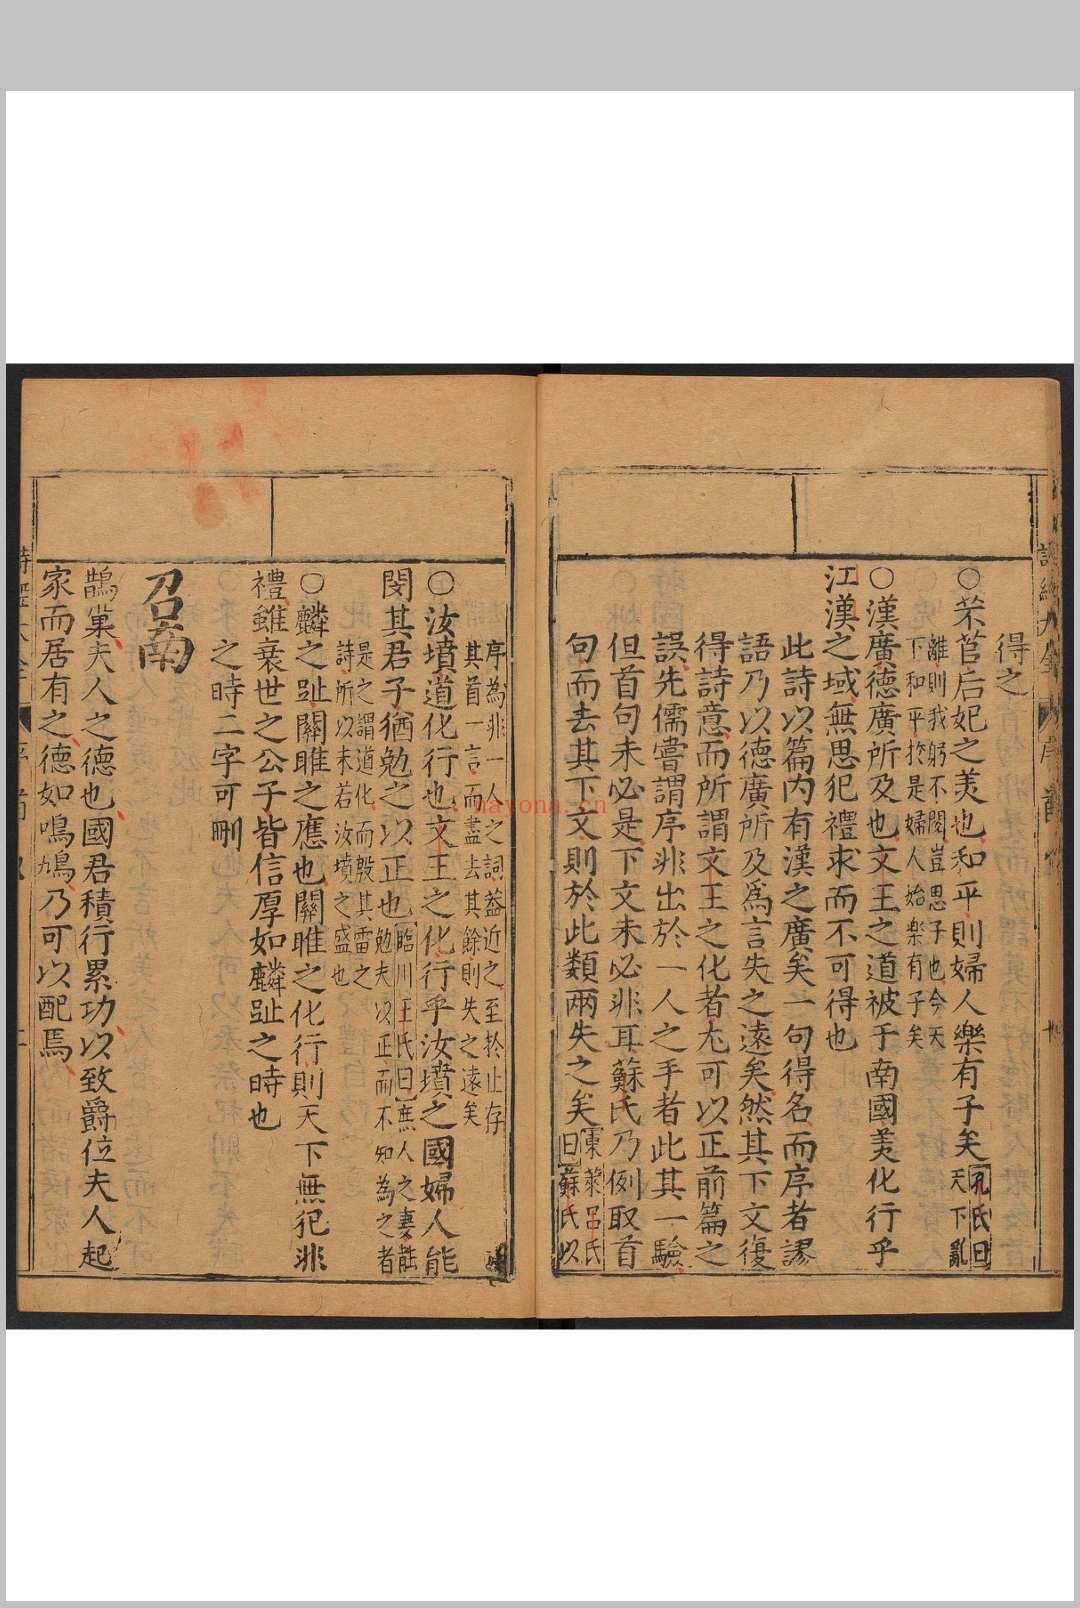 得之
○芣苢后妃之美也和平則婦人樂有子矣孔氏曰天下亂
離則我躬不閱豈思子也今天
下和平於是婦人始樂有子矣
○漢廣德廣所及也文王之道被于南國美化行乎
江漢之域無思犯禮求而不可得也
此詩以篇內有漢之廣矣一句得名而序者謬
語乃以德廣所及為言失之遠矣然其下文復
得詩意而所謂文王之化者尤可以正前篇之
誤先儒嘗謂序非出於一人之手者此其一驗
但首句未必是下文未必非耳蘇氏乃例取首
句而去其下文則於此類兩失之矣東萊呂氏曰蘇氏以
序為非一人之詞蓋近之至於止存
其首一言而盡去其餘則失之遠矣
○汝墳道化行也文王之化行乎汝墳之國婦人能
閔其君子猶勉之以正也臨川王氏曰庶人之妻能勉夫以正而不知為之者
是之謂道化而殷其雷之
詩所以未若汝墳之盛也
○麟之趾關雎之應也關雎之化行則天下無犯非
禮雖衰世之公子皆信厚如麟趾之時也
之時二字可刪
召南
鵲巢夫人之德也國君積行累功以致爵位夫人起
家而居有之德如鳴鳩乃可以配焉
nayona.cn